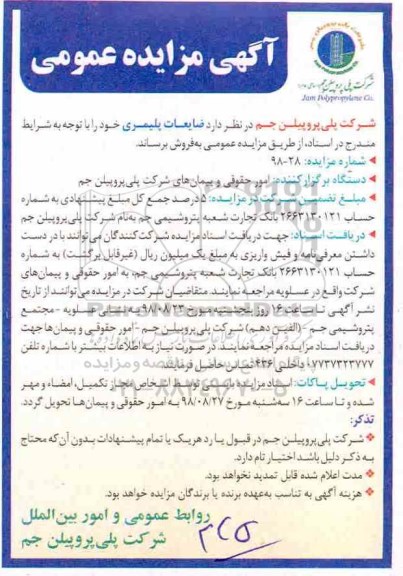 آگهی مزایده عمومی
شرکت پلی پروپیلن جم
Jam Polypropylene Co.
شرکت پلی پروپیلن جم در نظر دارد ضایعات پلیمری خود را با توجه به شرایط
مندرج در اسناد، از طریق مزایده عمومی به‌فروش برساند.
شماره مزایده: ۲۸-۹۸
دستگاه برگزارکننده: امور حقوقی و پیمان‌های شرکت پلی‌پروپیلن جم
مبلغ تضمین شرکت در مزایده: ۵ درصد جمع کل مبلغ پیشنهادی به شماره
حساب ۲۶۶۳۱۳۰۱۲۱ بانک تجارت شعبه پتروشیمی جم به‌نام شرکت پلی‌پروپیلن جم
دریافت اسناد: جهت دریافت اسناد مزایده شرکت‌کنندگان می‌توانند با در دست
داشتن معرفی‌نامه و فیش واریزی به مبلغ یک میلیون ریال (غیرقابل برگشت) به شماره
حساب ۲۶۶۳۱۳۰۱۲۱ بانک تجارت شعبه پتروشیمی جم، به امور حقوقی و پیمان‌های
شرکت واقع در عسلویه مراجعه نمایند. متقاضیان شرکت در مزایده می‌توانند از تاریخ
نشر آگهی تا ساعت ۱۶ روز پنجشنبه مورخ ۹۸/۰۸/۲۳ به نشانی عسلویه - مجتمع
پتروشیمی جم - (الفین دهم) شرکت پلی‌پروپیلن جم - امور حقوقی و پیمان‌ها جهت
دریافت اسناد مزایده مراجعه نمایند. در صورت نیاز به اطلاعات بیشتر با شماره تلفن
۰۷۷۳۷۳۲۳۷۷۷ داخلی ۹۳۶ تماس حاصل فرمایند.
تحویل پاکات: اسناد مزایده بایستی توسط اشخاص مجاز تکمیل، امضاء و مهر
شده و تا ساعت ۱۶ سه‌شنبه مورخ ۹۸/۰۸/۲۷ به امور حقوقی و پیمان‌ها تحویل گردد.
تذکر:
شرکت پلی‌پروپیلن جم در قبول یا رد هریک یا تمام پیشنهادات بدون آن که محتاج
به ذکر دلیل باشد اختیار تام دارد.
مدت اعلام شده قابل تمدید نخواهد بود.
هزینه آگهی به تناسب به‌عهده برنده یا برندگان مزایده خواهد بود.
روابط عمومی و امور بین‌الملل
شرکت پلی‌پروپیلن جم